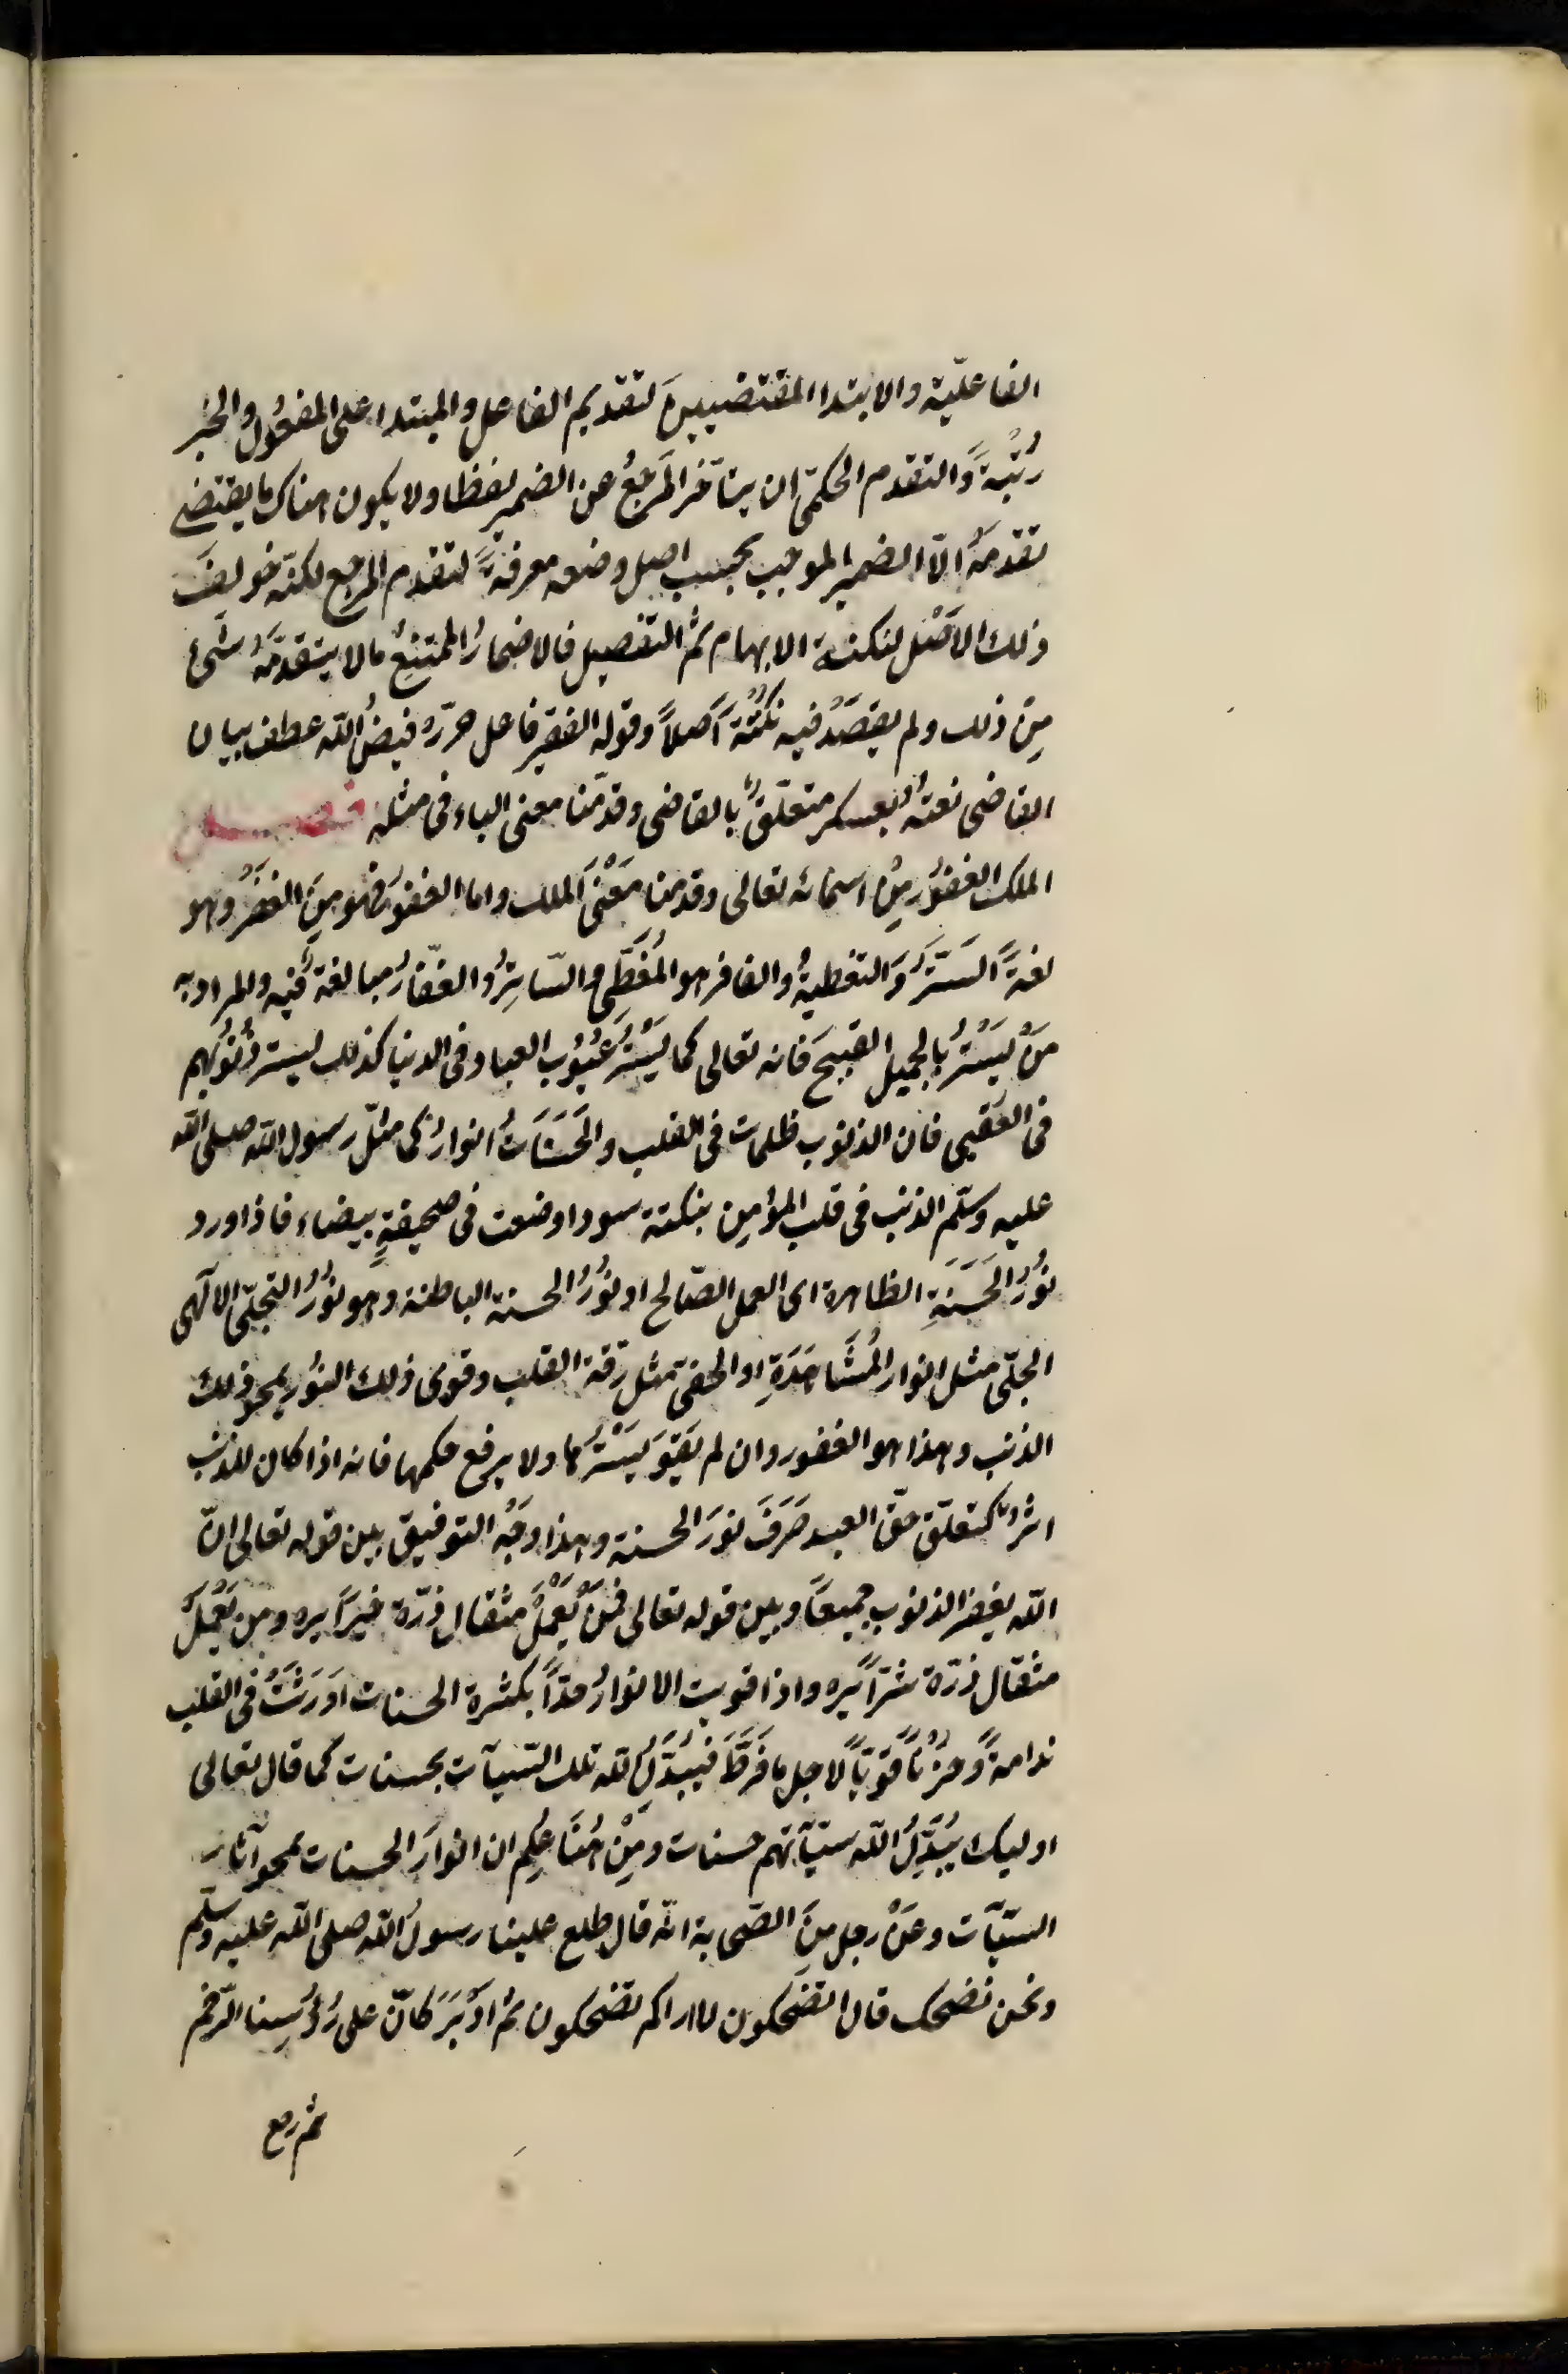 الفاعليّة والابتدا المقتضيين لتقديم الفاعل والمبتدا على المفعُول والخبر
رُتْبَةً والتقدم الحكمىّ ان يتأخر المرجعُ عن الضمير لفظا ولا يكون هناك ما يقتضى
تقدمهُ الاّ الضمير الموجب بحسب اصل وضعه معرفةً لتقدم المرجع لكنّه خولِفَ
ذلك الاَصْل لنكتة الابهام ثم التفصيل فالاضمارُ الممتنِعُ مالا يتقدّمهُ شئ
مِنْ ذلك ولم يقصَدْ فيه نكتَةٌ اَصلاً وقوله الفقير فاعل حرّرهُ فيضُ الله عطف بيان
القاضى نعتهُ بعسكر متعلّقٌ بالقاضى وقدّمنا معنى الباء فى مثله فصل
الملك الغفوُر مِنْ اسمائه تعالى وقدمنا مَعْنَى الملك واما الغفورُ فهو مِنَ الغَفْرِ وهو
لغةً السَتْرُ وَالتغطيةُ والغافر هو المُغَطِّى والسّاتِرُ والغفّارُ مبالغة فيه والمراد به
مَنْ يَسْتُرُ بالجميل القبيحَ فانه تعالى كما يَسْتُرُ عُيُوُب العباد فى الدنيا كذلك يستر ذُنُوُبَهم
فى العقبى فان الذنوب ظلمات فى القلب والحَسَنَاتُ انوارٌ كما مثّل رسول الله صلى الله
عليه وسلّم الذنب فى قلب المؤمِن بنكتة سودا وضعت فى صحيفةٍ بيضاء فاذا ورد
نوُرُ الحَسَنَةِ الظاهرة اى العمل الصّالح او نوُرُ الحسنة الباطنة وهو نوُرُ التجلّى الآلهى
الجلّى مثل انوار المُشَاهَدَةِ او الخفىّ مثل رقّة القلب وقوى ذلك النوُر يمحو ذلك
الذنب وهذا هو الغفور وان لم يَقْوَ يَسْتُرُها ولا يرفع حكمها فانه اذا كان للذنب
اثرٌ كتعلّق حقّ العبد صَرَفَ نورَ الحسنة وهذا وَجْهُ التوفيق بين قوله تعالى انّ
الله يغفر الذنوب جميعًا وبين قوله تعالى فمَنْ يَعْمَلْ مثقال ذرّة خيرًا يره ومن يَعْمَلْ
مثقال ذرّة شرًا يره واذا قويت الانوارُ جدّاً بكثرة الحسنات اَورَثَتْ فى القلب
ندامةً وحُزْنًا قَوِيّاً لاجل ما فَرَّطَ فَيُبَدِّلُ الله تلك السّيآت بحسنات كما قال تعالى
اوليك يُبَدِّلُ الله سيّآتهم حسنات ومِنْ هُنَا عُلِم ان انوارَ الحسنات تمحو آثار
السيّآت وعَنْ رجل مِنَ الصّحابة انه قال طلع علينا رسولُ الله صلى الله عليه وسلّم
ونحن نضحك قال اتضحكون لا اراكم تضحكون ثم اَدْبَرَ كانّ على رُؤُسِنا الرّخم
ثم رجع